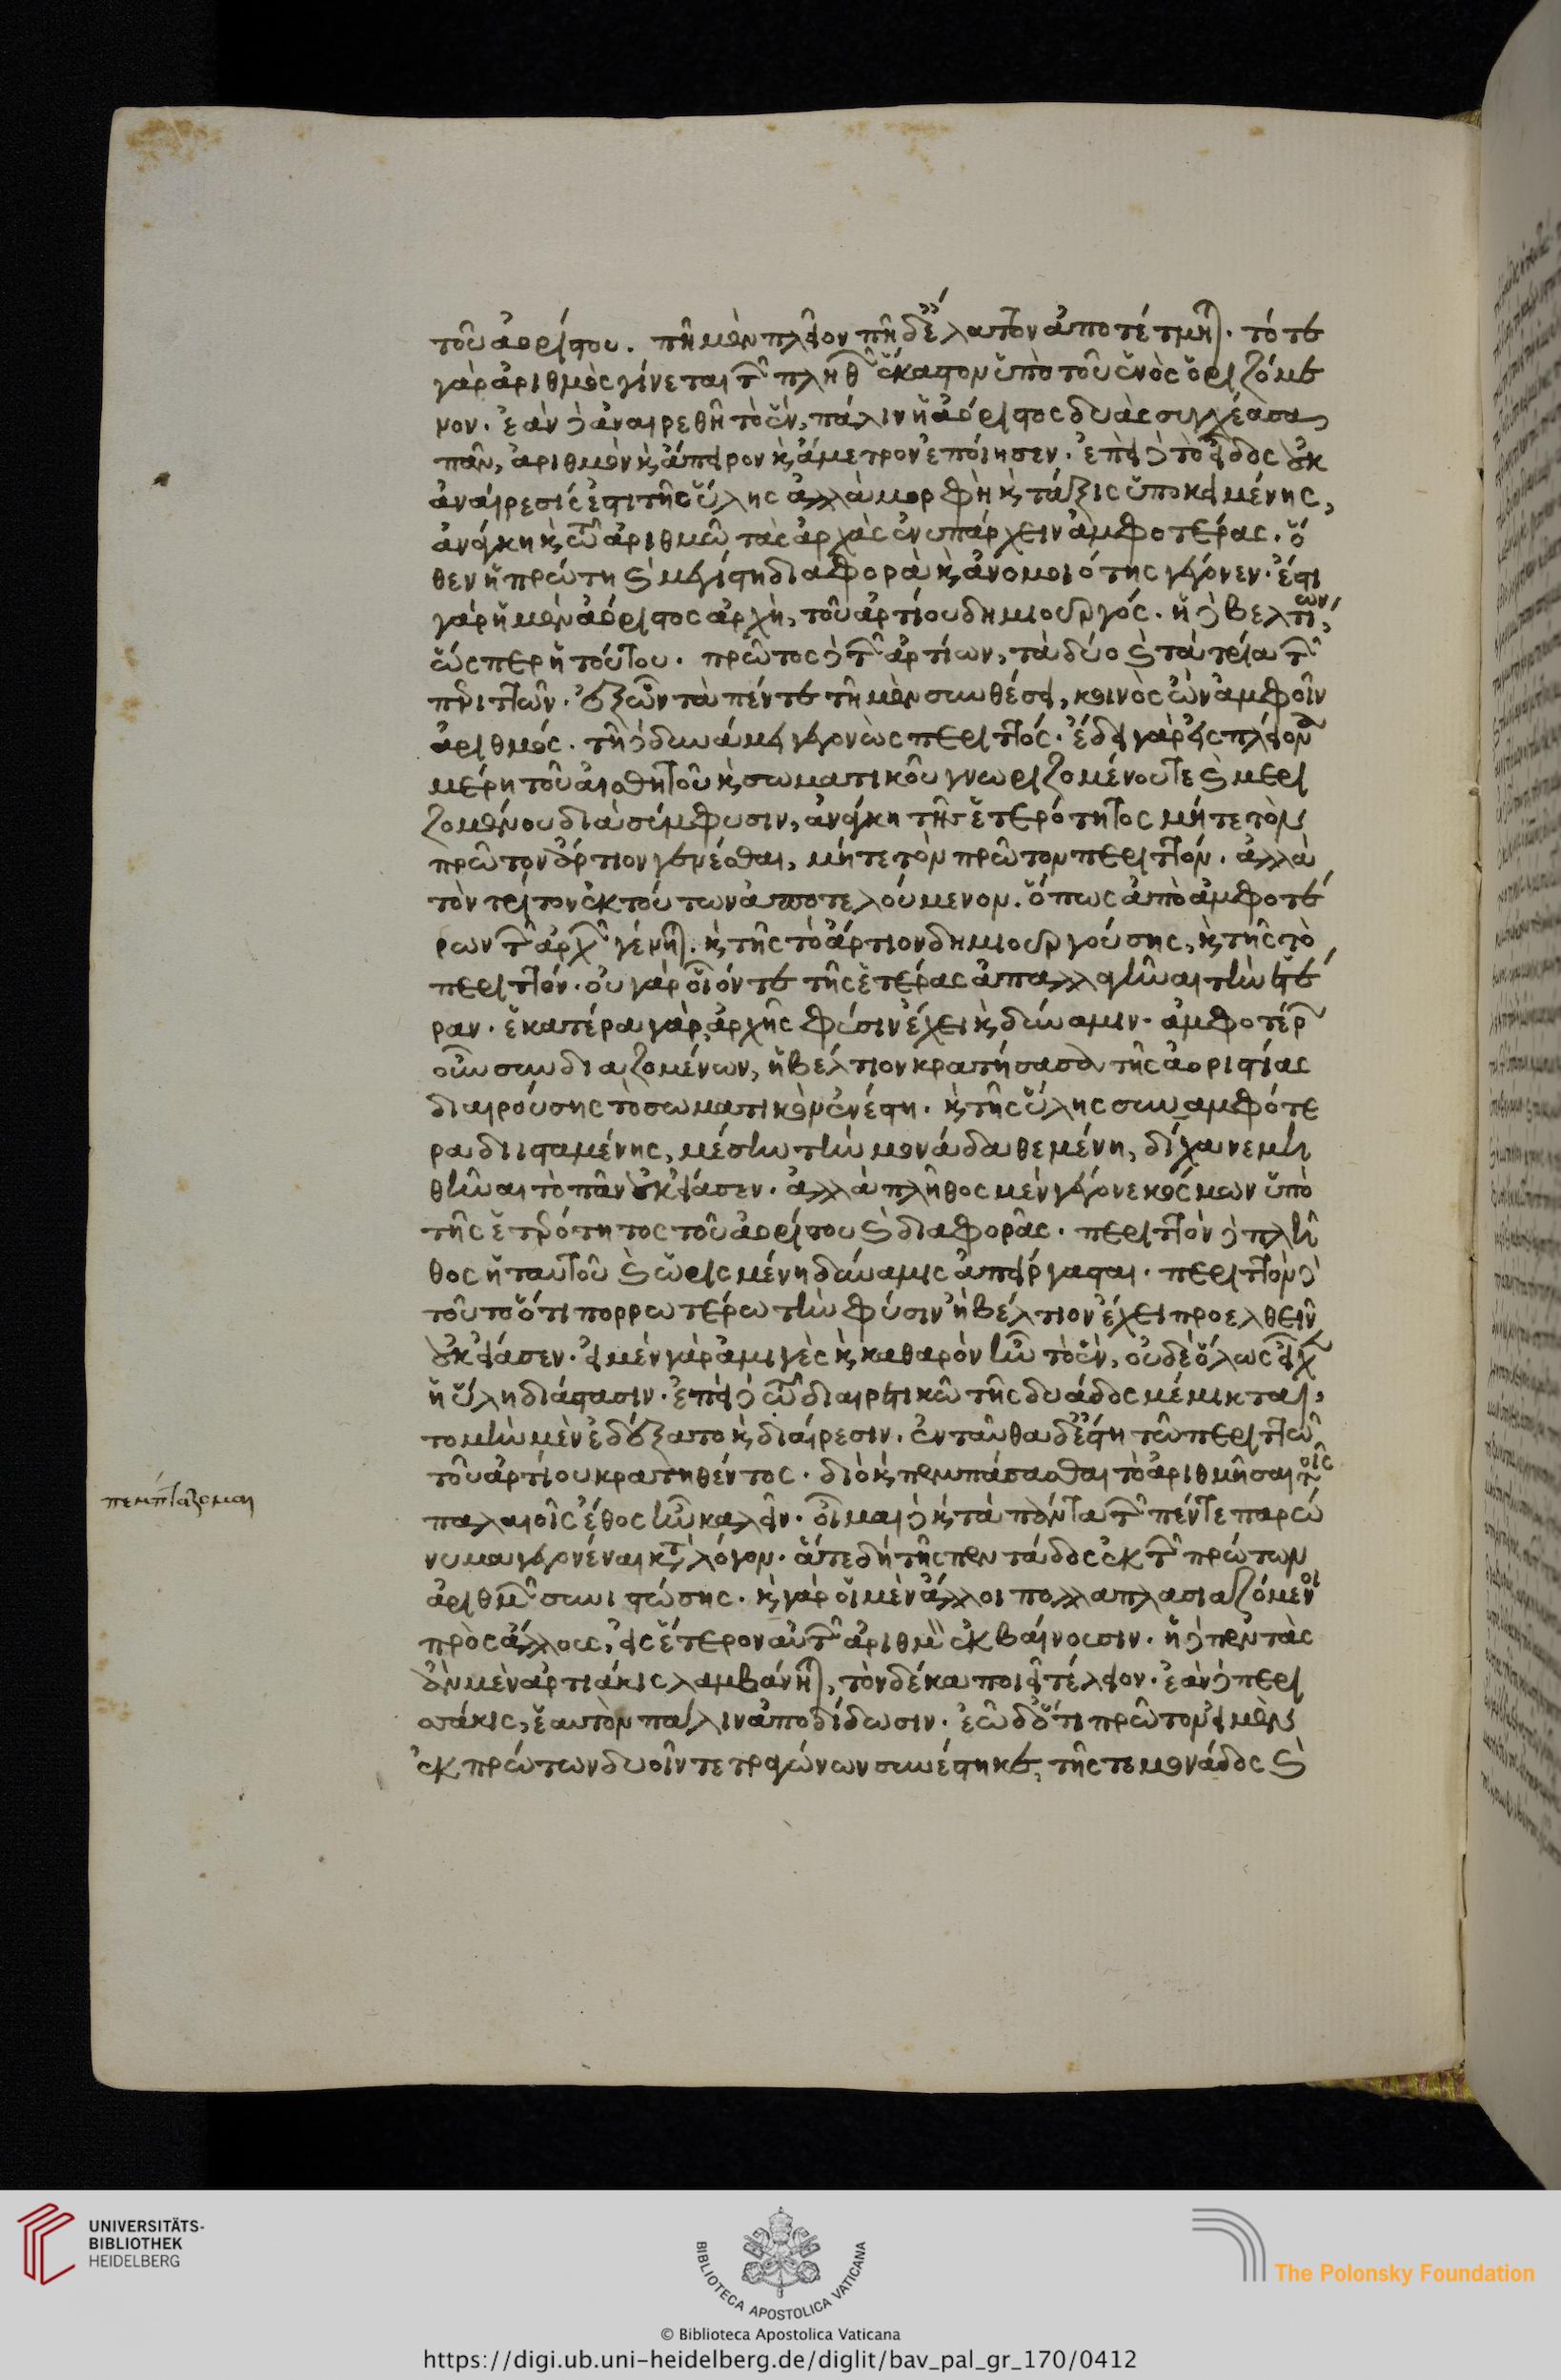 τοῦ ἀορίστου. πῆ μὲν πλεῖον πῆ δὲ ἔλαττον ἀποτέτμηται. τότε
γὰρ ἀριθμὸς γίνεται τῶν πληθῶν ἕκαστον ὑπὸ τοῦ ἑνὸς ὁριζόμε
νον. ἐὰν δὲ ἀναιρεθῆ τὸ ἕν, πάλιν ἡ ἀόριστος δυὰς συγχέασα
πᾶν, ἀριθμὸν καὶ ἄπειρον καὶ ἄμετρον ἐποίησεν. ἐπεὶ δὲ τὸ εἶδος οὐκ
ἀναίρεσίς ἐστι τῆς ὕλης ἀλλὰ μορφὴ καὶ τάξις ὑποκειμένης,
ἀνάγκη καὶ τῶ ἀριθμῶ τὰς ἀρχὰς ἐνυπάρχειν ἀμφοτέρας. ὅ
θεν ἡ πρώτη καὶ μεγίστη διαφορὰ καὶ ἀνομοιότης γέγονεν. ἔστι
γὰρ ἡ μὲν ἀόριστος ἀρχὴ, τοῦ ἀρτίου δημιουργός. ἡ δὲ βελτίων,
ὥσπερ ἡ τούτου. πρῶτος δὲ τῶν ἀρτίων, τὰ δύο καὶ τὰ τρία τῶν
περιττῶν. ἐξ ὧν τὰ πέντε τῆ μὲν συνθέσει, κοινὸς ὢν ἀμφοῖν
ἀριθμός. τῆ δὲ δυνάμει γεγονὼς περιττός. ἔδει γὰρ εἰς πλείονα
μέρη τοῦ αἰσθητοῦ καὶ σωματικοῦ γνωριζομένου τε καὶ μερι
ζομένου διὰ σύμφυσιν, ἀνάγκη τῆς ἑτερότητος μήτε τὸν
πρῶτον ἄρτιον γενέσθαι, μήτε τὸν πρῶτον περιττόν. ἀλλὰ
τὸν τρίτον ἐκ τούτων ἀποτελούμενον. ὅπως ἀπὸ ἀμφοτέ
ρων τῶν ἀρχῶν γένηται. καὶ τῆς τὸ ἄρτιον δημιουργούσης, καὶ τῆς τὸ
περιττόν. οὐ γὰρ οἷόν τε τῆς ἑτέρας ἀπαλλαγῆναι τὴν ἑτέ
ραν. ἑκατέρα γὰρ ἀρχῆς φύσιν ἔχει καὶ δύναμιν. ἀμφοτέρων
οὖν συνδιαζομένων, ἡ βέλτιον κρατήσασα τῆς ἀοριστίας
διαιρούσης τὸ σωματικὸν ἐνέστη. καὶ τῆς ὕλης συν ἀμφότε
ρα διισταμένης, μέσην τὴν μονάδα θεμένη, δίχα νεμη
θῆναι τὸ πᾶν οὐκ εἴασεν. ἀλλὰ πλῆθος μὲν γέγονε κόσμων ὑπὸ
τῆς ἑτερότητος τοῦ ἀορίστου καὶ διαφορᾶς. περιττὸν δὲ πλῆ
θος ἡ ταυτοῦ καὶ ὡρισμένη δύναμις ἀπείργασται. περιττὸν δὲ
τοῦτο ὅτι πορρωτέρω τὴν φύσιν ἢ βέλτιον ἔχει προελθεῖν
οὐκ εἴασεν. εἰ μὲν γὰρ ἀμιγὲς καὶ καθαρὸν ἦν τὸ ἕν, οὐδὲ ὅλως εἶχεν
ἡ ὕλη διάστασιν. ἐπεὶ δὲ τῶ διαιρετικῶ τῆς δυάδος μέμικται,
τομὴν μὲν ἐδέξατο καὶ διαίρεσιν. ἐνταῦθα δὲ ἔστη τῶ περιττῶ
τοῦ ἀρτίου κρατηθέντος. διὸ καὶ πεμπάσασθαι τὸ ἀριθμῆσαι τοῖς
πεμπτάζομαι
παλαιοῖς ἔθος ἦν καλεῖν. οἶμαι δὲ καὶ τὰ πάντα τῶν πέντε παρώ
νυμα γεγονέναι κατὰ λόγον. ἅτε δὴ τῆς πεντάδος ἐκ τῶν πρώτων
ἀριθμῶν συνιστώσης. καὶ γὰρ οἱ μὲν ἄλλοι πολλαπλασιαζόμενοι
πρὸς ἄλλους, εἰς ἕτερον αὑτῶν ἀριθμὸν ἐκβαίνουσιν. ἡ δὲ πεντὰς
ἂν μὲν ἀρτιάκις λαμβάνηται, τὸν δέκα ποιεῖ τέλειον. ἐὰν δὲ περι
σσάκις, ἑαυτὸν πάλιν ἀποδίδωσιν. ἐῶ δ' ὅτι πρῶτον εἰ μὲν
ἐκ πρώτων δυοῖν τετραγώνων συνέστηκε, τῆς τε μονάδος καὶ
UNIVERSITÄTS-
BIBLIOTHEK
HEIDELBERG
BIBLIOTECA APOSTOLICA VATICANA
The Polonsky Foundation
© Biblioteca Apostolica Vaticana
https://digi.ub.uni-heidelberg.de/diglit/bav_pal_gr_170/0412